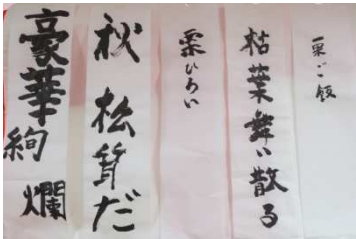 栗ご飯
枯葉舞い散る
栗ひろい
秋 松茸だ
豪華絢爛